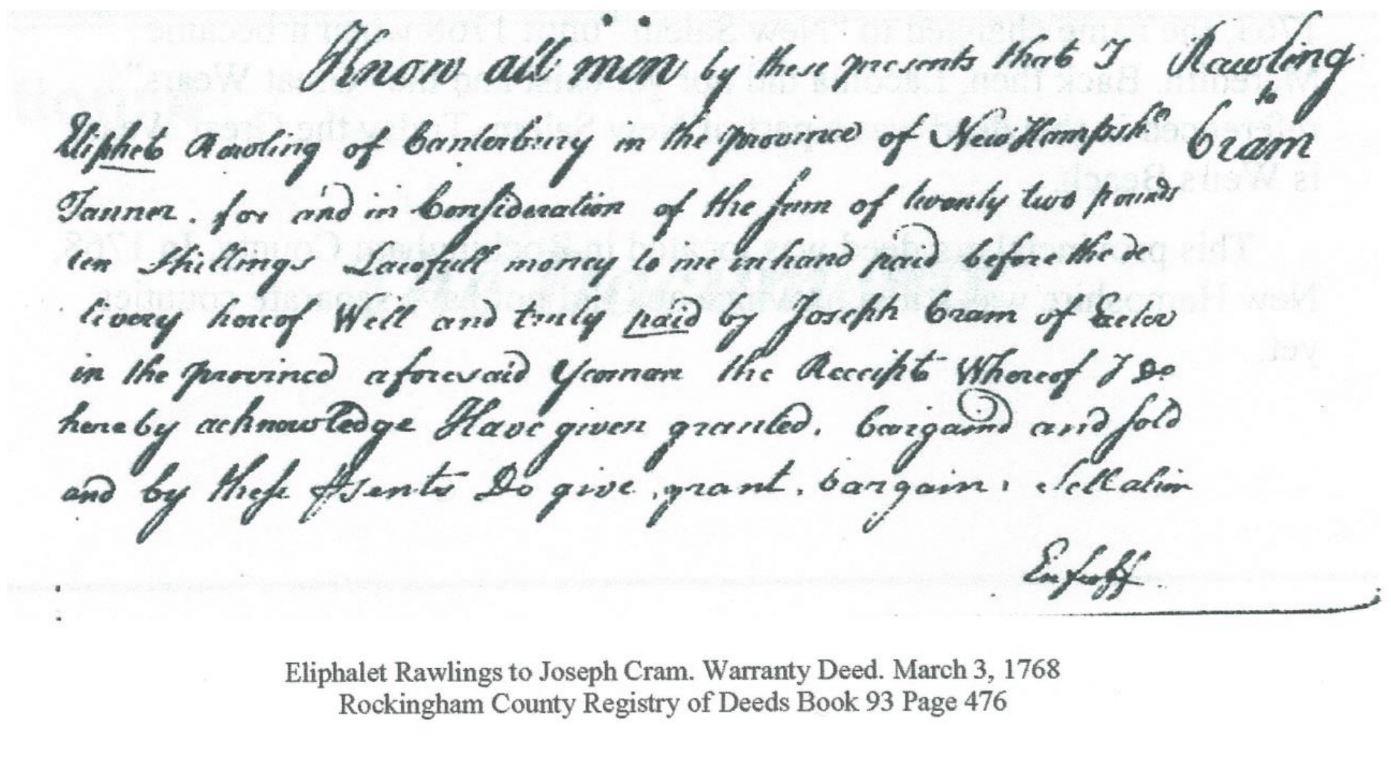 Know all men by these presents that I Rawling
to
Eliphet Rawling of Canterbury in the province of New Hampshr Cram
Tanner. for and in Consideration of the sum of twenty two pounds
ten shillings Lawfull money to me in hand paid before the de
livery hereof Well and truly paid by Joseph Cram of Exeter
in the province aforesaid Yeoman the Receipt Whereof I Do
hereby acknowledge Have given granted. bargaind and sold
and by these Psents Do give, grant, bargain, Sell alien
Enfeoff.
Eliphalet Rawlings to Joseph Cram. Warranty Deed. March 3, 1768
Rockingham County Registry of Deeds Book 93 Page 476